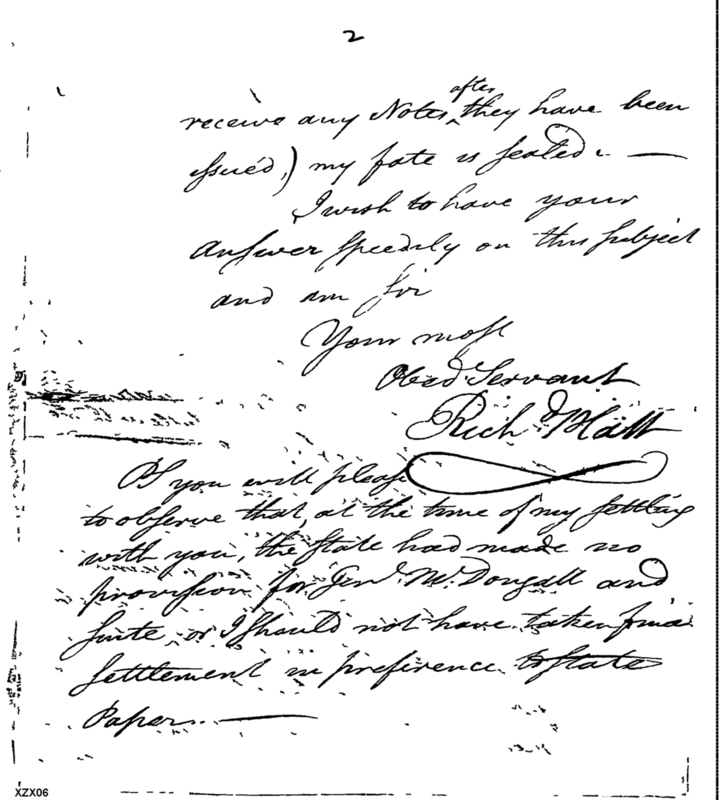 2
receive any Notes after they have been
issued,) my fate is sealed. —
I wish to have your
answer speedily on this subject
and am Sir
Your most
Obed. Servant
Rich.d Platt
PS you will please
to observe that, at the time of my settling
with you, the State had made no
provision for Genl. McDougall and
Suite, or I should not have taken final
Settlement in preference to State
Paper. —
XZX06